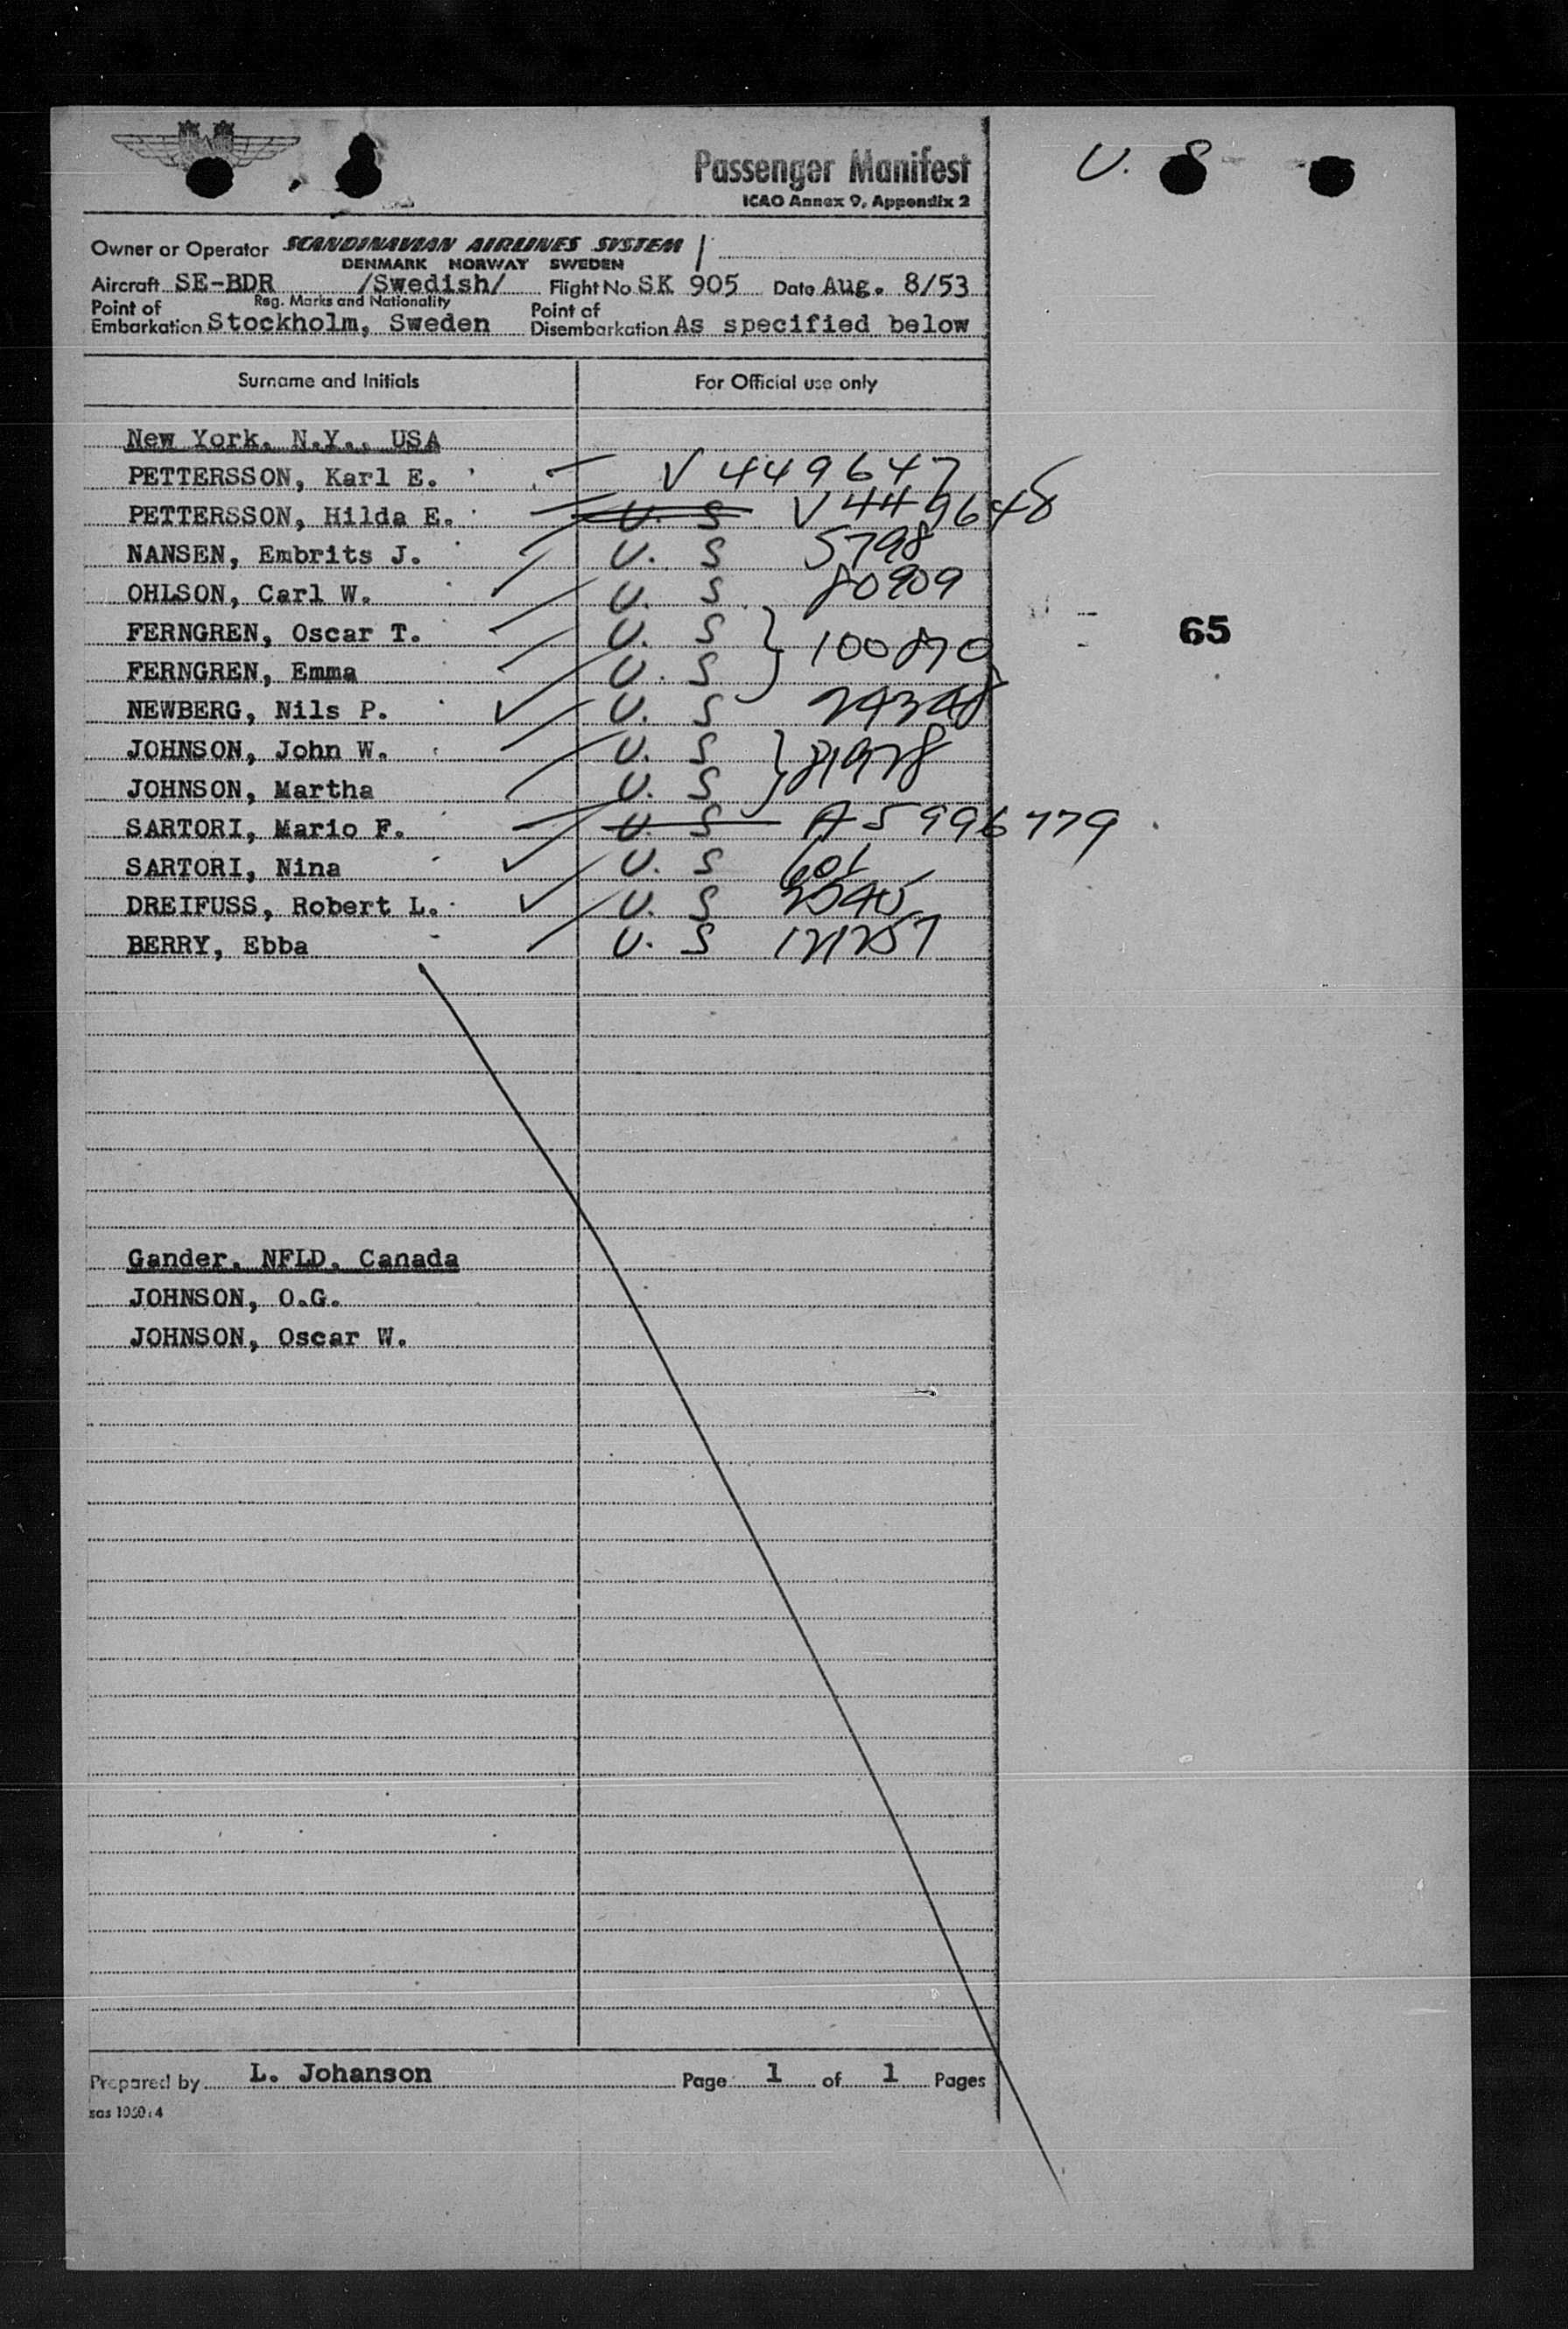 U. S
Passenger Manifest
ICAO Annex 9, Appendix 2
Owner or Operator SCANDINAVIAN AIRLINES SYSTEM
DENMARK NORWAY SWEDEN
Aircraft SE-BDR /Swedish/ Flight No SK 905 Date Aug. 8/53
Reg. Marks and Nationality
Point of Embarkation Stockholm, Sweden Point of Disembarkation As specified below
Surname and Initials For Official use only
New York, N.Y., USA
PETTERSSON, Karl E. V 449647
PETTERSSON, Hilda E. U. S V 449648
NANSEN, Embrits J. U. S 5798
OHLSON, Carl W. U. S 80909
FERNGREN, Oscar T. U. S
FERNGREN, Emma U. S 100870
65
NEWBERG, Nils P. U. S
JOHNSON, John W. U. S
JOHNSON, Martha U. S
SARTORI, Mario F. U. S A5996779
SARTORI, Nina U. S 601
DREIFUSS, Robert L. U. S
BERRY, Ebba U. S 121257
Gander, NFLD, Canada
JOHNSON, O.G.
JOHNSON, Oscar W.
Prepared by L. Johanson Page 1 of 1 Pages